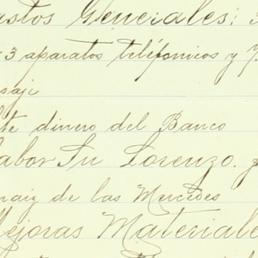 astos Generales:
3 aparatos teléfonicos y
saje
te dinero del Banco
abor Sn Lorenzo.
maiz de las Mercedes
ejoras Materiale